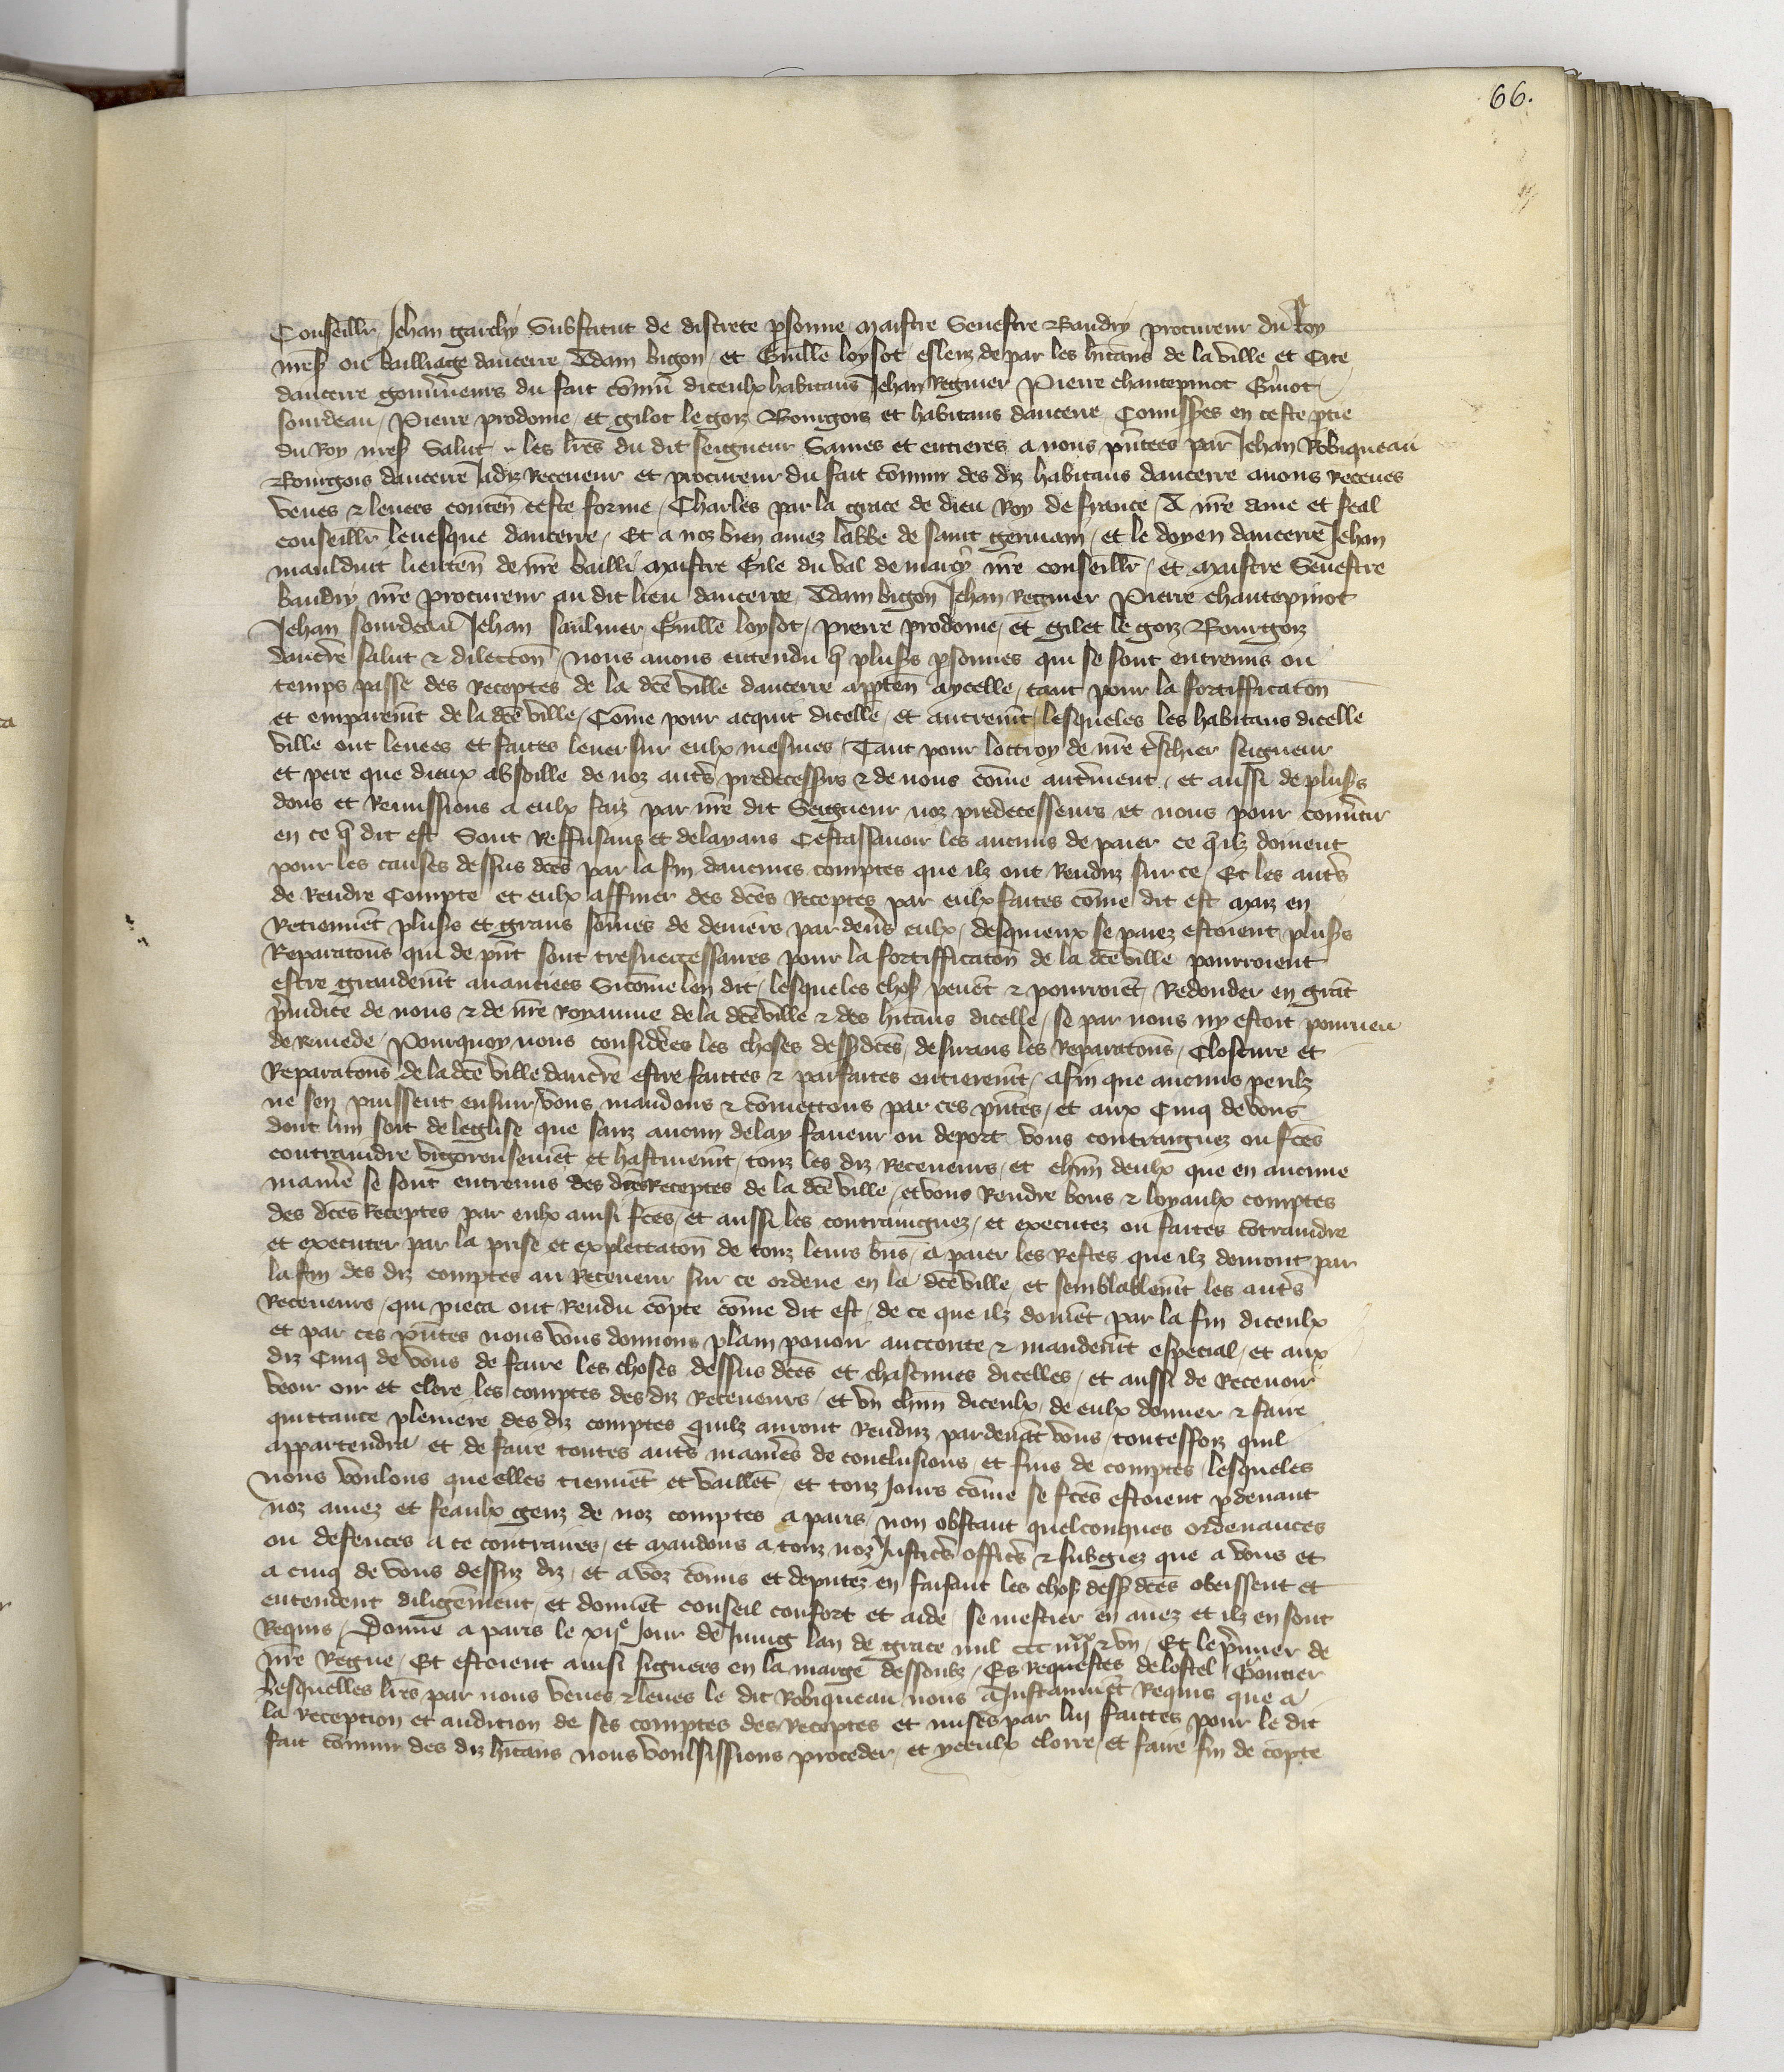 66.
Conseillr Jehan garchy Substitut de discrete psonne maistre Seuestre Baudry procureur du Roy
nres ou bailliage daucerre Adam bigon et Guille loysot esleuz de par les hitans de la ville et Cite
daucerre gouuneurs du fait comun diceulx habitans Jehan Regnier Pierre chantepinot Guiot
sourdeau Pierre prodome et gilot le gois Bourgois et habitans daucerre Comisses en ceste ptie
du Roy nres Salut les lres du dit seigneur Saines et entieres a nous pntees par Jehan Robiqueau
Bourgois daucerre Jadiz Receueur et procureur du fait commun des diz habitans daucerre auons Receues
veues & leues conten ceste forme Charles par la grace de dieu Roy de france A nre ame et feal
conseillr leuesque daucerre Et a noz bien amez labbe de saint germain et le doyen daucerre Jehan
maulduit lieuten de nre bailli maistre Gile du val de marcy nre conseillr et maistre Seuestre
baudry nre procureur au dit lieu daucerre Adam bigon Jehan Regnier Pierre chantepinot
Jehan sourdeau Jehan saulnier Guille loysot pierre prodome et gilet le gois Bourgois
daucrre salut & dilection nous auons entendu q pluss psonnes qui se sont entremis ou
temps passe des Receptes de la dce ville daucerre appten a ycelle tant pour la fortifficaton
et emparemt de la dce ville Come pour acquit dicelle et autremt lesqueles les habitans dicelle
ville ont leuees et faites leuer sur eulx mesmes Tant pour loctroy de nre tschier seigneur
et pere que dieux absoille de noz auts predecessrs & de nous come autrement et aussi de pluss
dons et Remissions a eulx faiz par nre dit Seigneur noz predecesseurs et nous pour conutir
en ce q dit est Sont Reffusans et delayans Cestassauoir les aucuns de paier ce quilz doiuent
pour les causes dessus dces par la fin daucuns comptes que ilz ont Renduz sur ce Et les auts
de Rendre Compte et eulx affiner des dces Receptes par eulx faites come dit est maiz en
Retiennet pluss et grans somes de deniers par deus eulx desquieux se paiez estoient pluss
Reparatons qui de pnt sont tresneccessaires pour la fortifficaton de la dce ville pourroient
estre grandemt auanciees Sicome len dit lesqueles chos peuet & pourroiet Redonder en grat
piudice de nous & de nre Royaume de la dce ville & des hitans dicelle se par nous ny estoit pourueu
de remede Pourquoy nous considerees les choses dessdces desirans les Reparatons Closture et
Reparatons de la dce ville daucrre estre faittes & parfaites entieremt afin que aucuns perilz
ne sen puissent ensuir vous mandons & comettons par ces pntes et aux Cinq de vous
dont lun soit de leglise que sanz aucun delay faueur ou deport vous contraignez ou fces
contraindre vigoreusement et hastiuemt touz les diz Receueurs et chun deulx que en aucune
maniere se sont entremis des dces Receptes de la dce ville et vous Rendre bons & loyaulx comptes
des dces Receptes par eulx ainsi fces et aussi les contraingnez et executez ou faites contraindre
et executer par la prise et explectaton de touz leurs bns a paier les Restes que ilz deuront par
la fin des diz comptes au Receueur sur ce ordene en la dce ville et semblablemt les auts
Receueurs qui pieca ont Rendu copte come dit est de ce que ilz doiuet par la fin diceulx
et par ces pntes nous vous donnons plain pouoir auctorite & mandemt especial et aux
diz Cinq de vous de faire les choses dessus dces et chascunes dicelles et aussi de Receuoir
veoir oir et clore les comptes des diz Receueurs et vn chun diceulx de eulx donner & faire
quittance pleniere des diz comptes quilz auront Renduz pardeuat vous toutesfoiz quil
appartendra et de faire toutes auts manies de conclusions et fins de comptes lesqueles
nous voulons que elles tiennet et vaillet et touz Jours come se fces estoient pdeuant
noz amez et feaulx genz de noz comptes a paris non obstant quelconques ordenances
ou defences a ce contraires et mandons a touz noz Justicrs officrs & subgiez que a vous et
a cinq de vous dessuz diz et a voz commis et deputez en faisant les chos dessdces obeissent et
entendent diligemment et donnet conseil confort et aide se mestier en auez et ilz en sont
Requis Donne a paris le xije Jour de Juing lan de grace mil ccc iiijxx & vn Et le pmier de
nre Regne Et estoient ainsi signees en la marge dessoubz Es Requestes de lostel Gontier
Lesquelles lres par nous veues & leues le dit Robiqueau nous a Instamment Requis que a
la Reception et audition de ses comptes des Receptes et mises par lui faittes pour le dit
fait commun des diz hitans nous voulsissions proceder et yceulx clorre et faire fin de copte